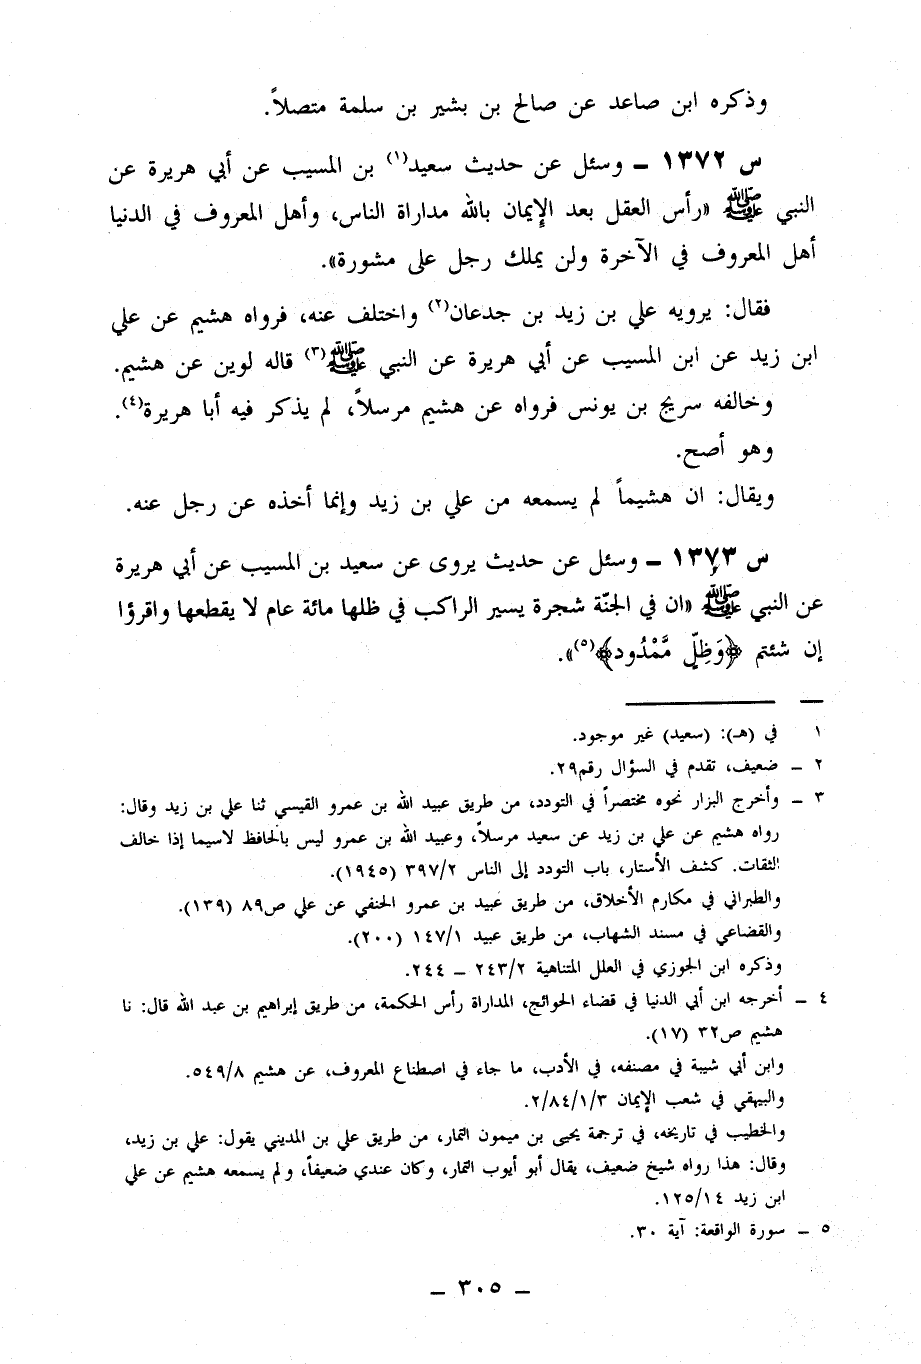 وذكره ابن صاعد عن صالح بن بشير بن سلمة متصلاً.
س ١٣٧٢ ـ وسئل عن حديث سعيد(١) بن المسيب عن أبي هريرة عن
النبي ﷺ «رأس العقل بعد الإيمان بالله مداراة الناس، وأهل المعروف في الدنيا
أهل المعروف في الآخرة ولن يملك رجل على مشورة».
فقال: يرويه علي بن زيد بن جدعان(٢) واختلف عنه، فرواه هشيم عن علي
ابن زيد عن ابن المسيب عن أبي هريرة عن النبي ﷺ(٣) قاله لوين عن هشيم.
وخالفه سريج بن يونس فرواه عن هشيم مرسلاً، لم يذكر فيه أبا هريرة(٤).
وهو أصح.
ويقال: ان هشيماً لم يسمعه من علي بن زيد وإنما أخذه عن رجل عنه.
س ١٣٧٣ ـ وسئل عن حديث يروى عن سعيد بن المسيب عن أبي هريرة
عن النبي ﷺ «ان في الجنّة شجرة يسير الراكب في ظلها مائة عام لا يقطعها واقرؤا
إن شئتم ﴿وَظِلٍّ مَّمْدُود﴾(٥)».
١ ـ في (هـ): (سعيد) غير موجود.
٢ ـ ضعيف، تقدم في السؤال رقم٢٩.
٣ ـ وأخرج البزار نحوه مختصراً في التودد، من طريق عبيد الله بن عمرو القيسي ثنا علي بن زيد وقال:
رواه هشيم عن علي بن زيد عن سعيد مرسلاً، وعبيد الله بن عمرو ليس بالحافظ لاسيما إذا خالف
الثقات. كشف الأستار، باب التودد إلى الناس ٣٩٧/٢ (١٩٤٥).
والطبراني في مكارم الأخلاق، من طريق عبيد بن عمرو الحنفي عن علي ص٨٩ (١٣٩).
والقضاعي في مسند الشهاب، من طريق عبيد ١٤٧/١ (٢٠٠).
وذكره ابن الجوزي في العلل المتناهية ٢٤٣/٢ ـ ٢٤٤.
٤ ـ أخرجه ابن أبي الدنيا في قضاء الحوائج، المداراة رأس الحكمة، من طريق إبراهيم بن عبد الله قال: نا
هشيم ص٣٢ (١٧).
وابن أبي شيبة في مصنفه، في الأدب، ما جاء في اصطناع المعروف، عن هشيم ٥٤٩/٨.
والبيهقي في شعب الإيمان ٢/٨٤/١/٣.
والخطيب في تاريخه، في ترجمة يحيى بن ميمون التمار، من طريق علي بن المديني يقول: علي بن زيد،
وقال: هذا رواه شيخ ضعيف، يقال أبو أيوب التمار، وكان عندي ضعيفاً، ولم يسمعه هشيم عن علي
ابن زيد ١٢٥/١٤.
٥ ـ سورة الواقعة: آية ٣٠.
ـ ٣٠٥ ـ